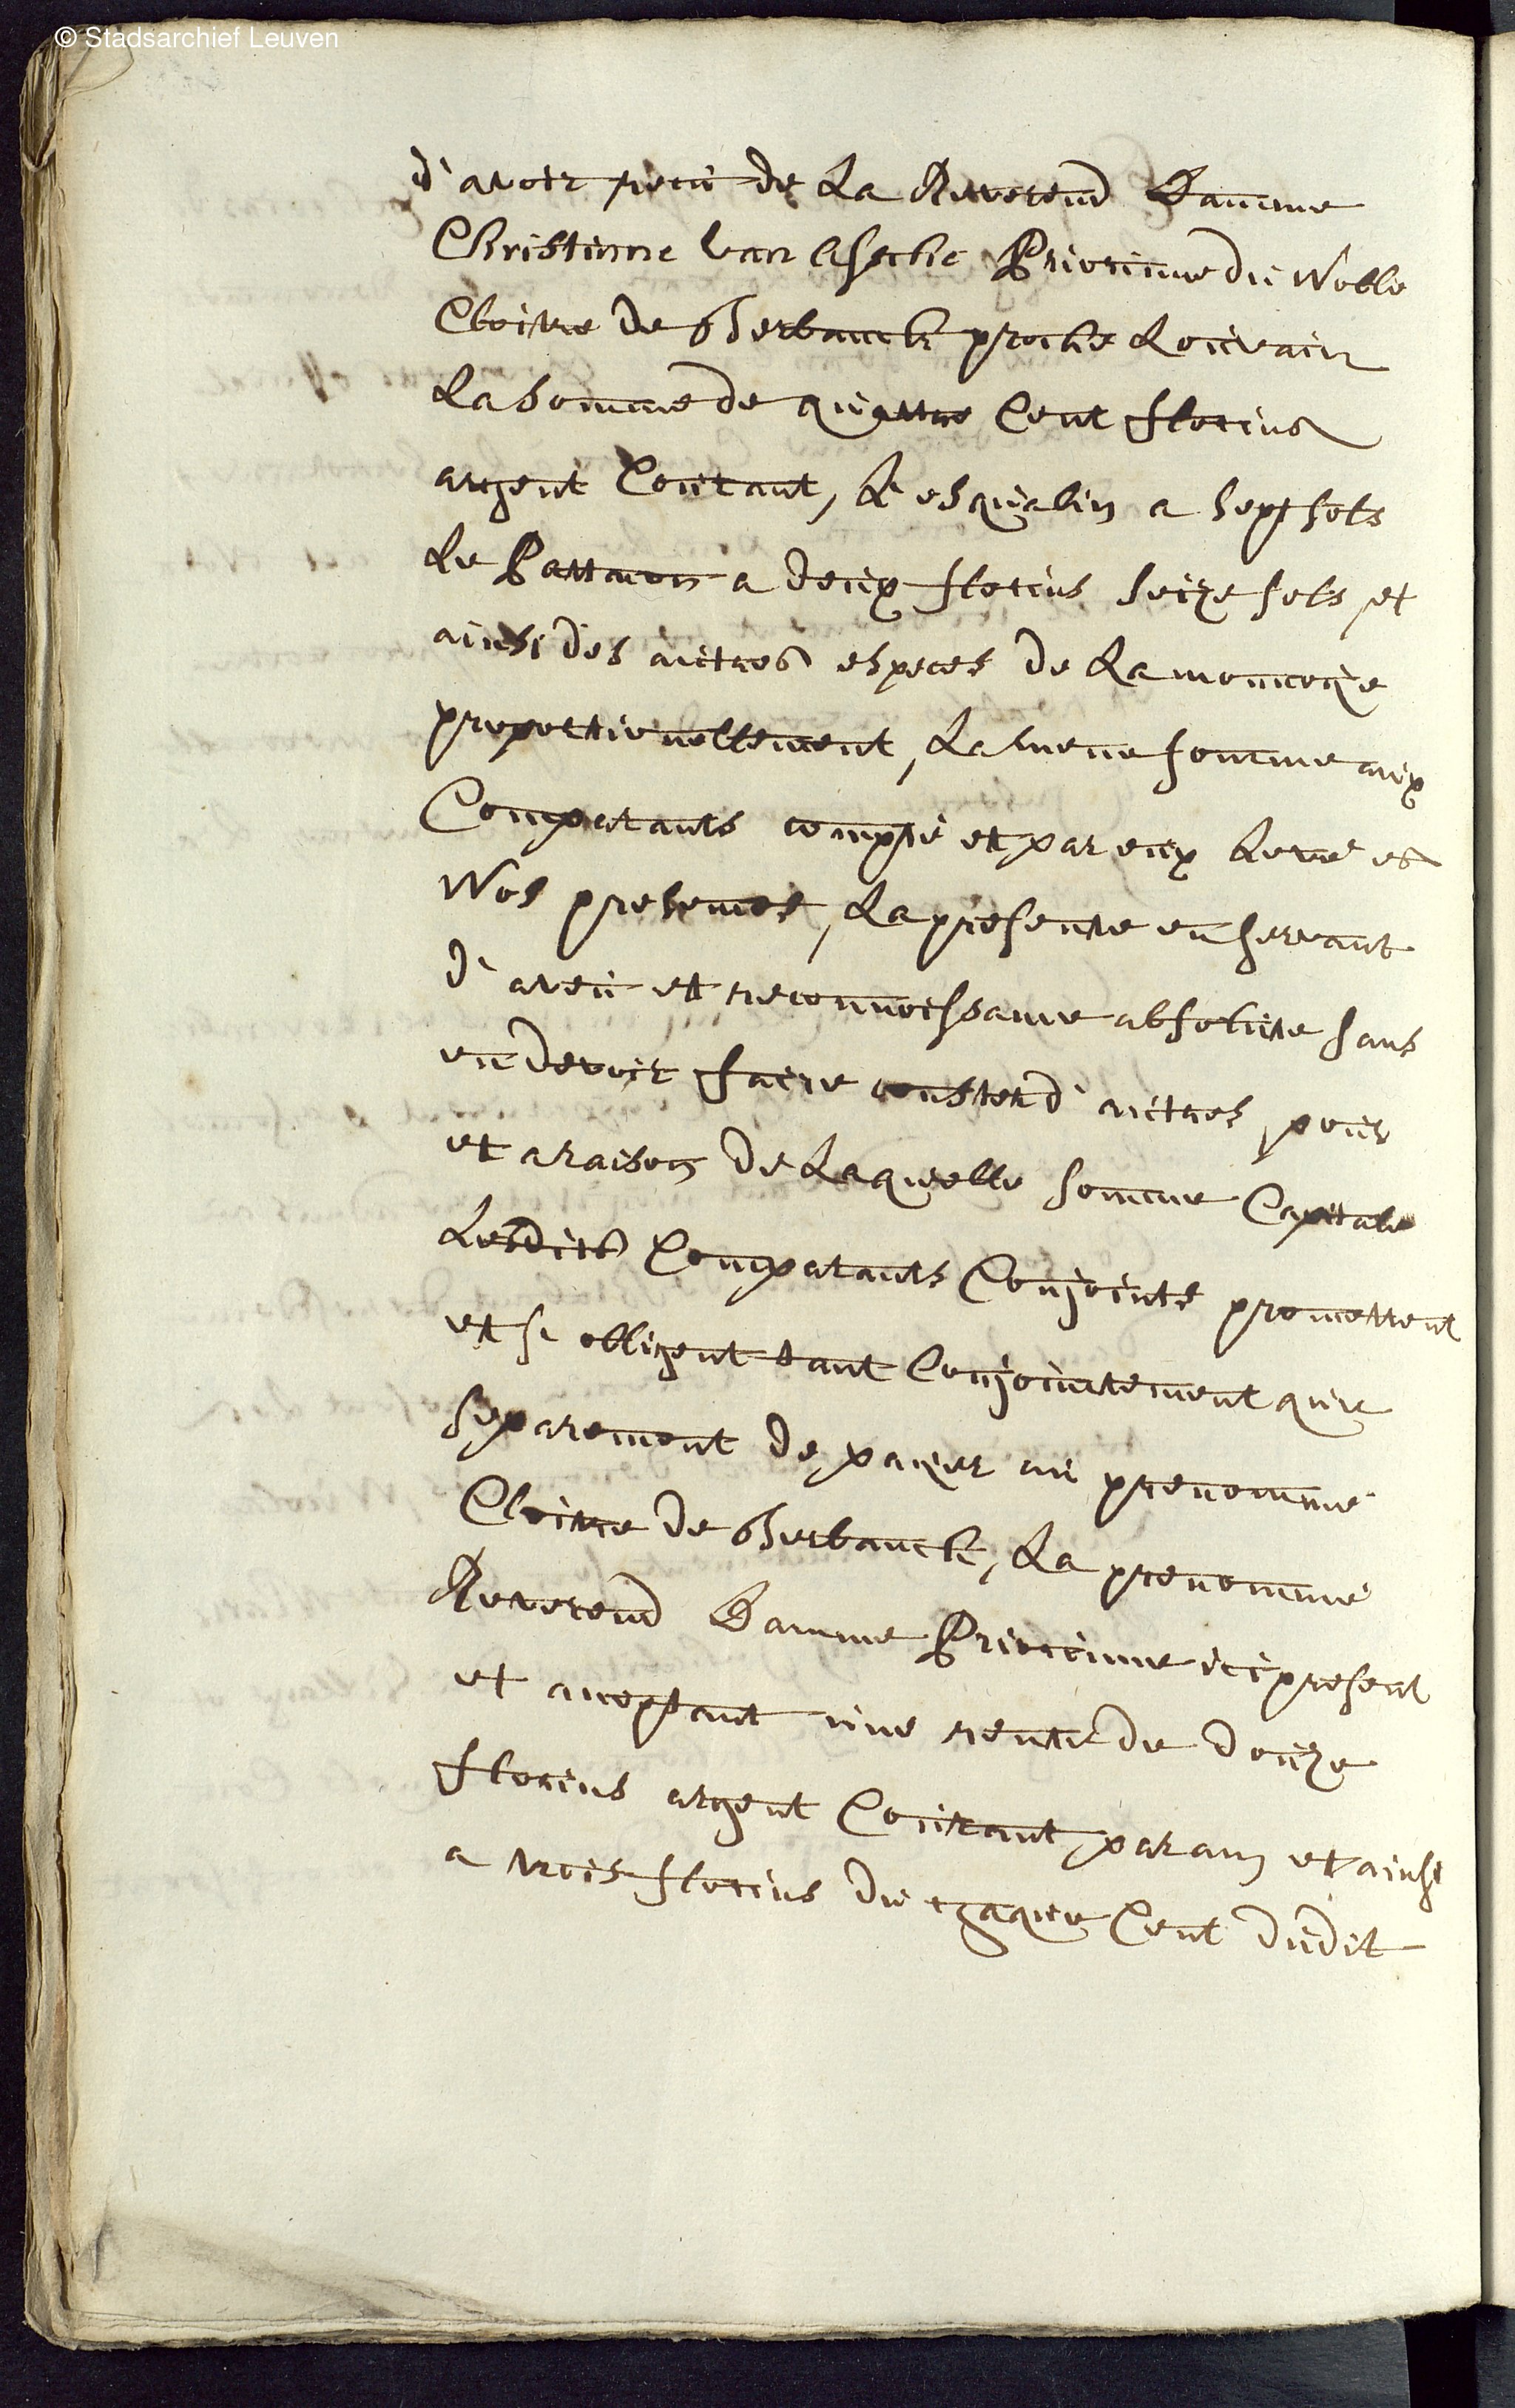 © Stadsarchief Leuven
d'avoir receu de La Reverend Damme
Christinne van Assche Priorinne du Noble
Cloitre de Gherbanck proche Louvain
La Somme de quattre Cent florins
argent Courant, L'esqualin a sept sols
Le Pattacon a deux florins seize sols, et
ainsi des autres especes de La monnoye
proportionellement, La mene somme aux
Comparants compté et par eux Levé es
Nos presences, La presente en servant
d'aveu et reconnoissance absolute sans
en devoir faire conster d'autres, pour
et a raison de Laquelle somme Capitale
Lesdits Comparants Conjoints promettent
et se obligent tant Conjointement que
separement de payer au prenommé
Cloitre de Gherbanck, La prenommé
Reverend Damme Priorinne ici present
et acceptant une rente de douze
florins argent Courant, par an, et ainsi
a trois florins du chaque Cent dudit